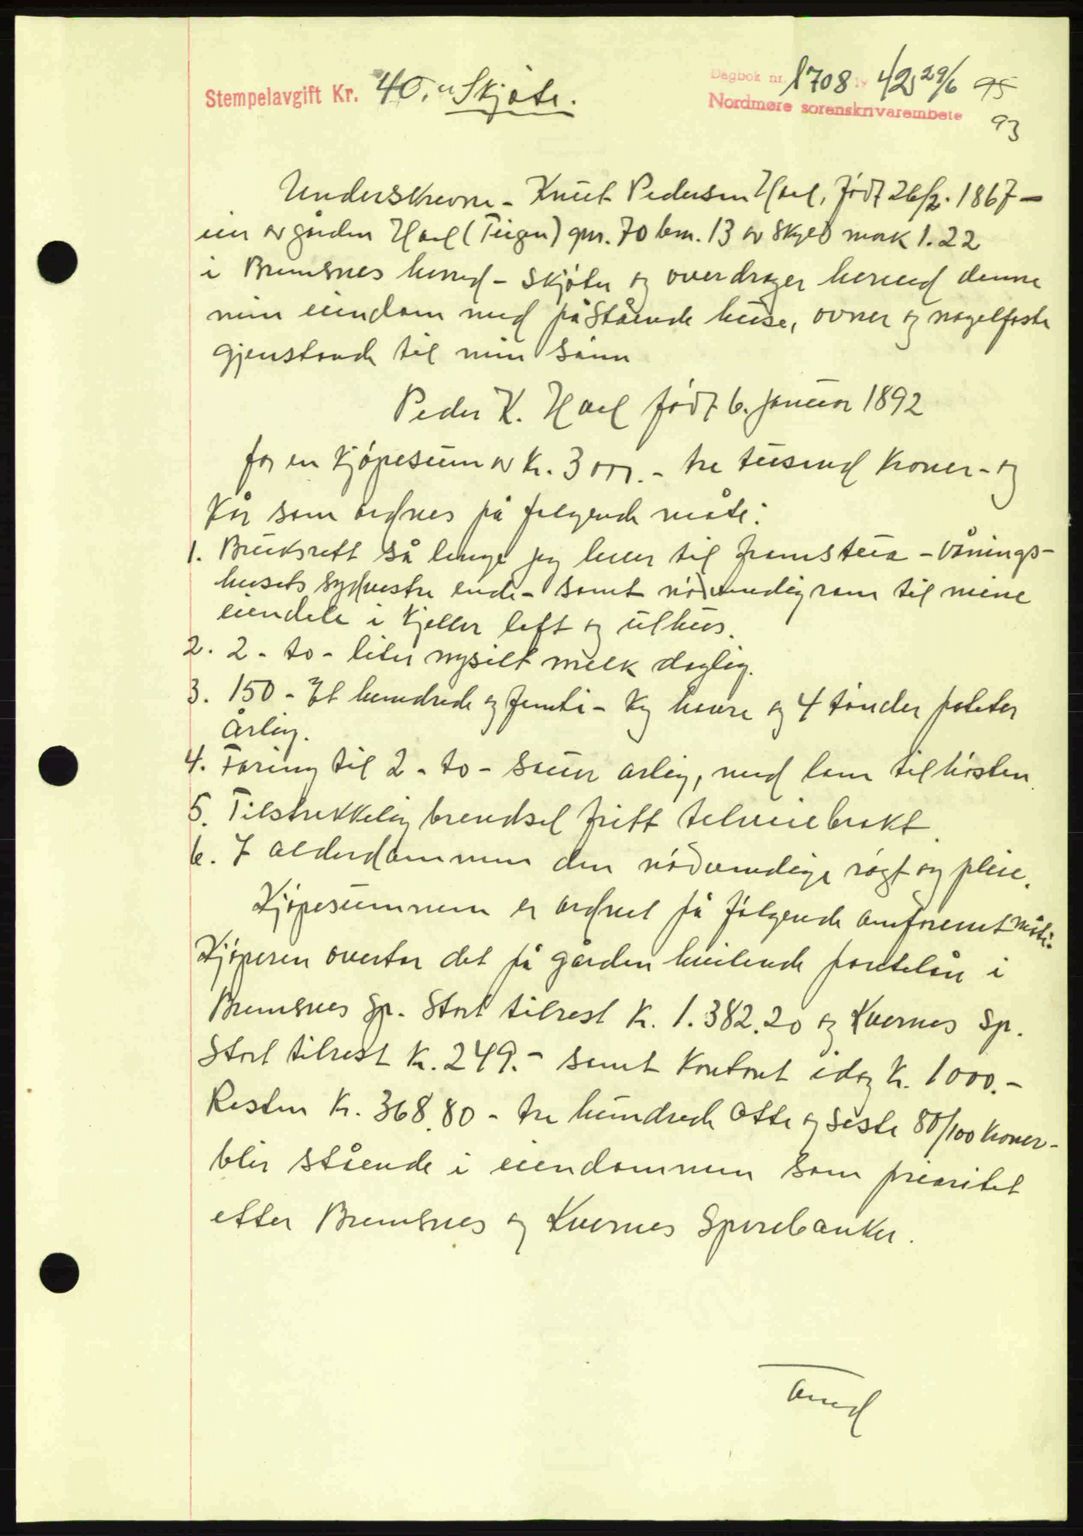 Stempelavgift Kr. 40,- Skjøte.
Dagbok nr. 1708 19 42 29/6 95
Nordmøre sorenskrivarembete 93
Underskrevne - Knut Pedersen Hoel, født 26/2. 1867 -
eier av gården Hoel (Teigen) gnr. 70 bnr. 13 av skyld mark 1.22
i Bremsnes herred - skjøter og overdrager herved denne
min eiendom med påstående huse, ovner og nagelfaste
gjenstande til min sønn
Peder K. Hoel født 6. januar 1892
for en kjøpesum av kr. 3000.- tre tusend kroner - og
kår som ordnes på følgende måte:
1. Bruksrett så lenge jeg lever til framstua - vånings-
husets sydvestre ende - samt nødvendig rom til mine
eiendele i kjeller loft og uthus.
2. 2 - to - liter nysilt melk daglig.
3. 150 - Et hundrede og femti - kg havre og 4 tønder poteter
årlig.
4. Foring til 2 - to - sauer årlig, med lam til høsten.
5. Tilstrekkelig brendsel fritt
6. I alderdommen den nødvendige røgt og pleie.
Kjøpesummen er ordnet på følgende omforenet måte:
Kjøperen overtar det på gården hvilende pantelån i
Bremsnes Sp. Stort tilrest kr. 1.382.20 og Kvernes Sp.
Stort tilrest kr. 249.- samt kontant idag kr. 1000.-
Resten kr. 368.80 - tre hundrede otte og seksti 80/100 kroner -
blir stående i eiendommen som prioritet
etter Bremsnes og Kvernes Sparebanker.